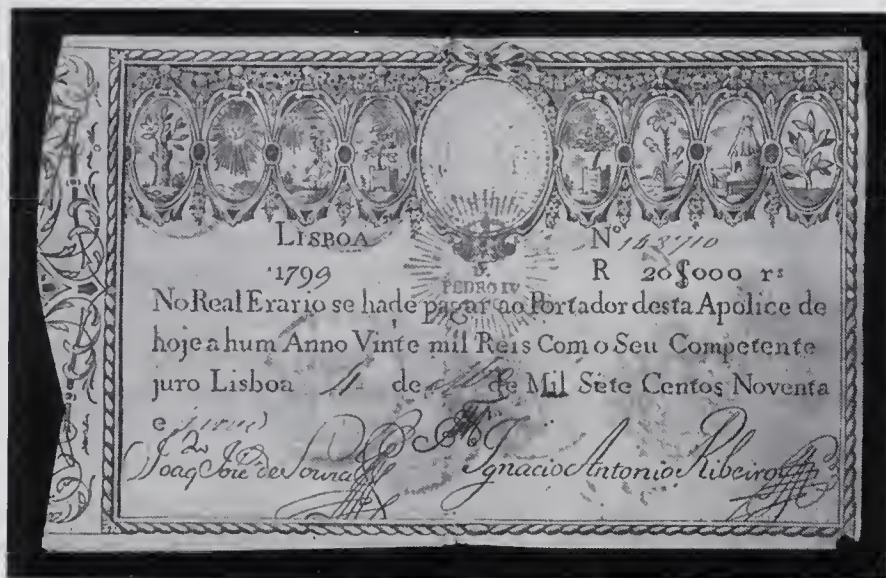 LISBOA
Nº
1799
R 20$000 rs
D.
PEDRO IV
No Real Erario se hade pagar ao Portador desta Apolice de
hoje a hum Anno Vinte mil Reis Com o Seu Competente
juro Lisboa de de Mil Sete Centos Noventa
e
Joaqm José de Souza
Ignacio Antonio Ribeiro